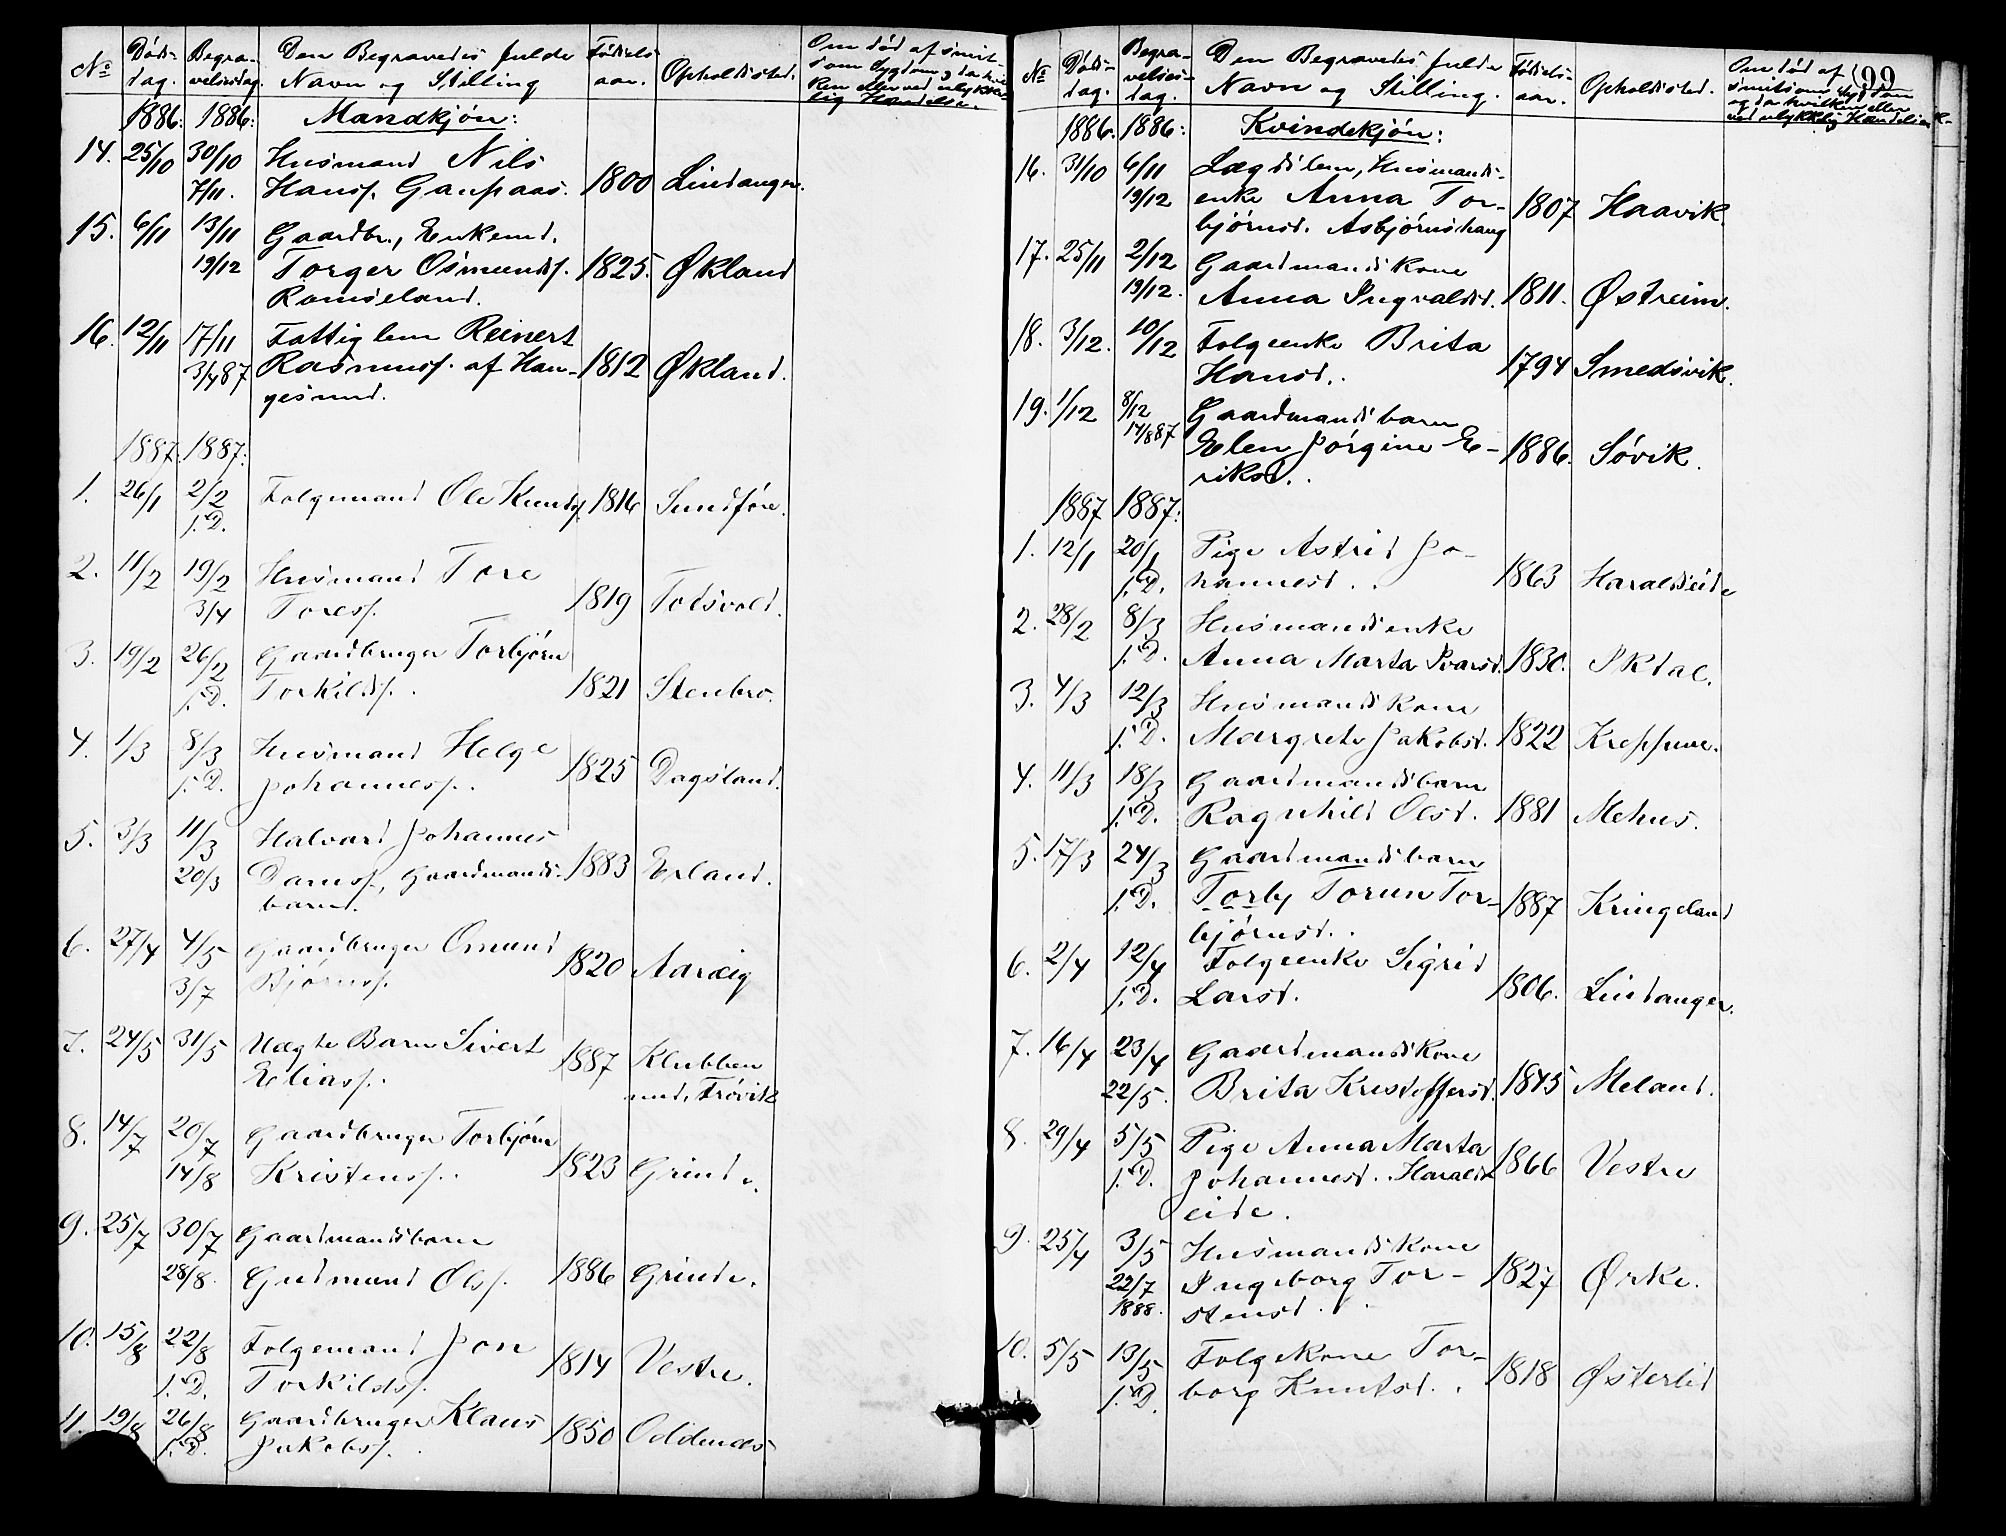 No Døds- Begra- Den Begravedes fulde Fødsels- Opholdssted. Om død af smit-
dag. velsesdag. Navn og Stilling aar. som Sygdom, og da hvil-
ken eller ved ulykke-
lig Handelse.
1886: 1886: Mandkjøn:
14. 25/10 30/10 Husmand Nils
7/11. Hanss. Gaupaas. 1800 Lindanger.
15. 6/11 13/11 Gaardbr., Enkemd.
19/12 Torger Osmunds. 1825. Økland
Ramseland.
16. 12/11 17/11 Fattiglem Reinert
3/4 87 Rasmuss. af Hau- 1812 Økland.
gesund.
1887. 1887:
1. 26/1 2/2 Folgemand Ole Knuds. 1816 Sundføre.
s. D.
2. 11/2 19/2 Husmand Tore
3/4 Toress. 1819 Todsvold.
3. 19/2 26/2 Gaardbruger Torbjørn
s. D. Torkilds. 1821 Stenbro.
4. 1/3 8/3 Husmand Helge
s. D. Johanness. 1825 Dagsland.
5. 3/3 11/3 Halvard Johannes
20/3 Daniss., Gaardmands- 1883 Erland.
barn.
6. 27/4 4/5 Gaardbruger Omund
3/7 Bjørns. 1820 Aarvig
7. 24/5 31/5 Uægte Barn Sivert
Eliass. 1887 Klubben
und. Frøvik
8. 14/7 20/7 Gaardbruger Torbjørn
14/8 Kristenss. 1823 Grinde.
9. 25/7 30/7 Gaardmandsbarn
28/8. Gudmund Ols. 1886 Grinde.
10. 15/8 22/8 Folgemand Jon
s. D. Torkildss. 1814 Vestre.
11. 19/8 26/8 Gaardbruger Klaus
s. D. Jakobs. 1850 Oddenæs
99
No Døds- Begra- Den Begravedes fulde Fødsels- Opholdssted. Om død af
dag. velses- Navn og Stilling. aar. smitsom Sygdom
dag. og da hvilken eller
ved ulykkelig Handelse.
1886. 1886: Kvindekjøn:
16. 31/10 6/11 Lægdslem, Husmands-
19/12 enke Anna Tor- 1807 Haavik.
bjørnsd. Asbjørnshaug
17. 25/11 2/12 Gaardmandskone
19/12. Anna Ingvaldsd. 1811. Østreim.
18. 3/12. 10/12 Folgeenke Brita
Hansd. 1794 Smedsvik.
19. 1/12 8/12 Gaardmandsbarn
14/8 87 Elen Jørgine E- 1886. Søvik.
riksd.
1887 1887:
1. 12/1 20/1 Pige Astrid Jo-
s. D. hannesd. 1863 Haraldseide
2. 28/2 8/3 Husmandsenke
s. D. Anna Marta Ivarsd. 1830. Ikdal.
3. 4/3 12/3 Husmandskone
s. D. Margrete Jakobsd. 1822 Kreppene.
4. 11/3 18/3 Gaardmandsbarn
s. D. Ragnhild Olsd. 1881 Mehus.
5. 17/3 24/3 Gaardmandsbarn
s. D. Torby Torun Tor- 1887 Kringeland
bjørnsd.
6. 2/4 12/4 Folgeenke Sigrid
s. D. Larsd. 1806. Lindanger.
7. 16/4 23/4 Gaardmandskone
22/5. Brita Kristoffersd. 1845 Meland.
8. 29/4 5/5 Pige Anna Marta
s. D. Johannesd. Harald- 1866 Vestre
eide.
9. 25/4 3/5 Husmandskone
22/7 Ingeborg Tor- 1827 Ørke.
1888. stensd.
10. 5/5 13/5 Folgekone Tor-
s. D. borg Knutsd. 1818 Østerlid